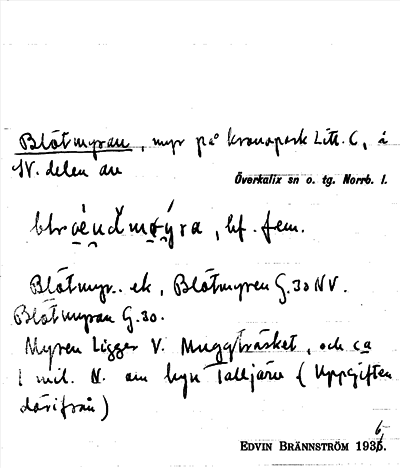 Blötmyran, myr på kronopark Litt. C, i
N. delen av
Överkalix sn o. tg. Norrb. l.
bf. fem.
Blötmyr.. ek, Blötmyren G.30 NV.
Blötmyran G.30.
Myren ligger V. Muggträsket, och ca
1 mil. N. om byn Talljärv (Uppgiften
därifrån)
EDVIN BRÄNNSTRÖM 1936.